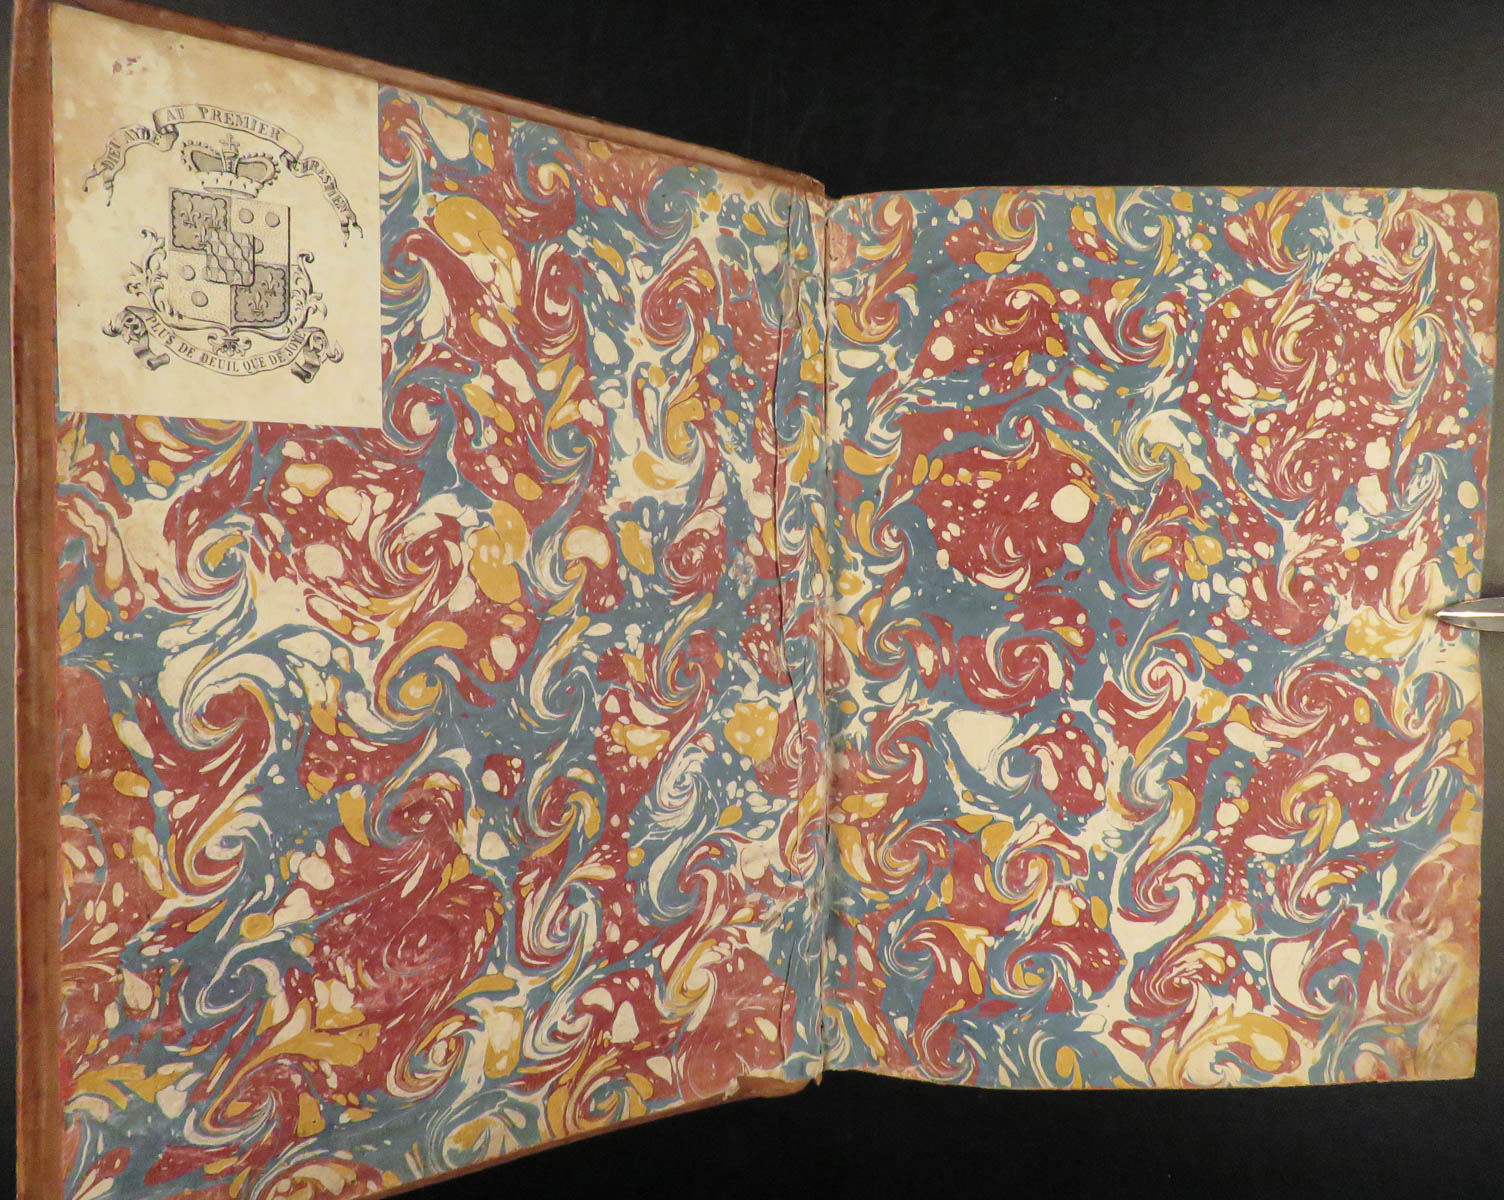 DIEU AYDE AU PREMIER CHRESTIEN
PLUS DE DEUIL QUE DE JOYE